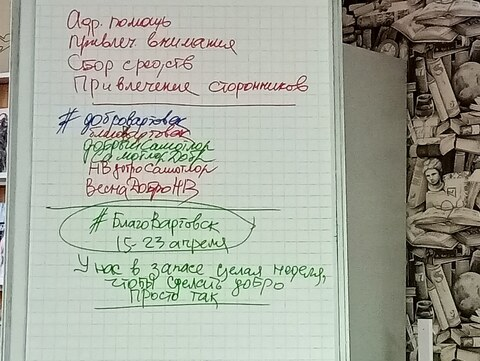 Адр. помощь
привлеч внимания
Сбор средств
Привлечение сторонников
# добровартовск
добрыйСамотлор
СамотлорДобр
НВдоброСамотлор
ВеснаДоброНВ
# БлагоВартовск
15-23 апреля
У нас в запасе целая неделя,
чтобы сделать добро
Просто так